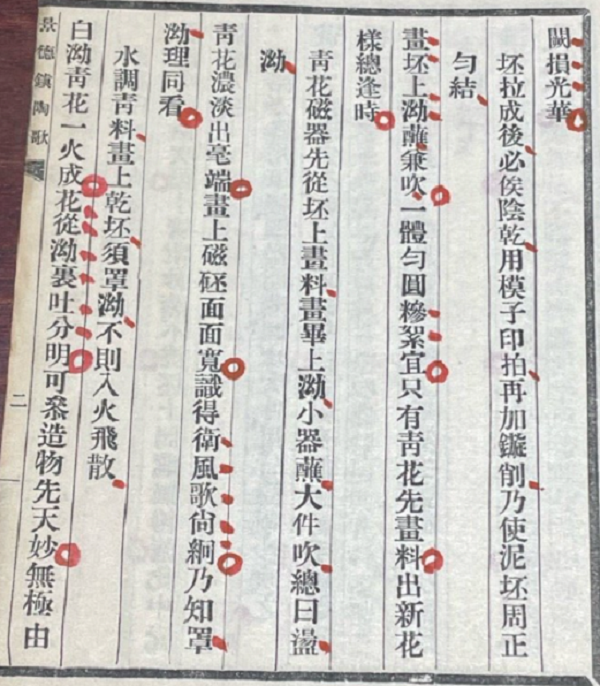 闕損光華
坯拉成後必俟陰乾用模子印拍再加鏇削乃使泥坯周正
勻結
畫坯上泑蘸兼吹一體勻圓糝絮宜只有靑花先畫料出新花
樣總逢時
靑花磁器先從坯上畫料畫畢上泑小器蘸大件吹總曰盪
泑
靑花濃淡出毫端畫上磁坯面面寬識得衛風歌尙絅乃知罩
泑理同看
水調靑料畫上乾坯須罩泑不則入火飛散
白泑靑花一火成花從泑裏吐分明可叅造物先天妙無極由
景德鎭陶歌
二